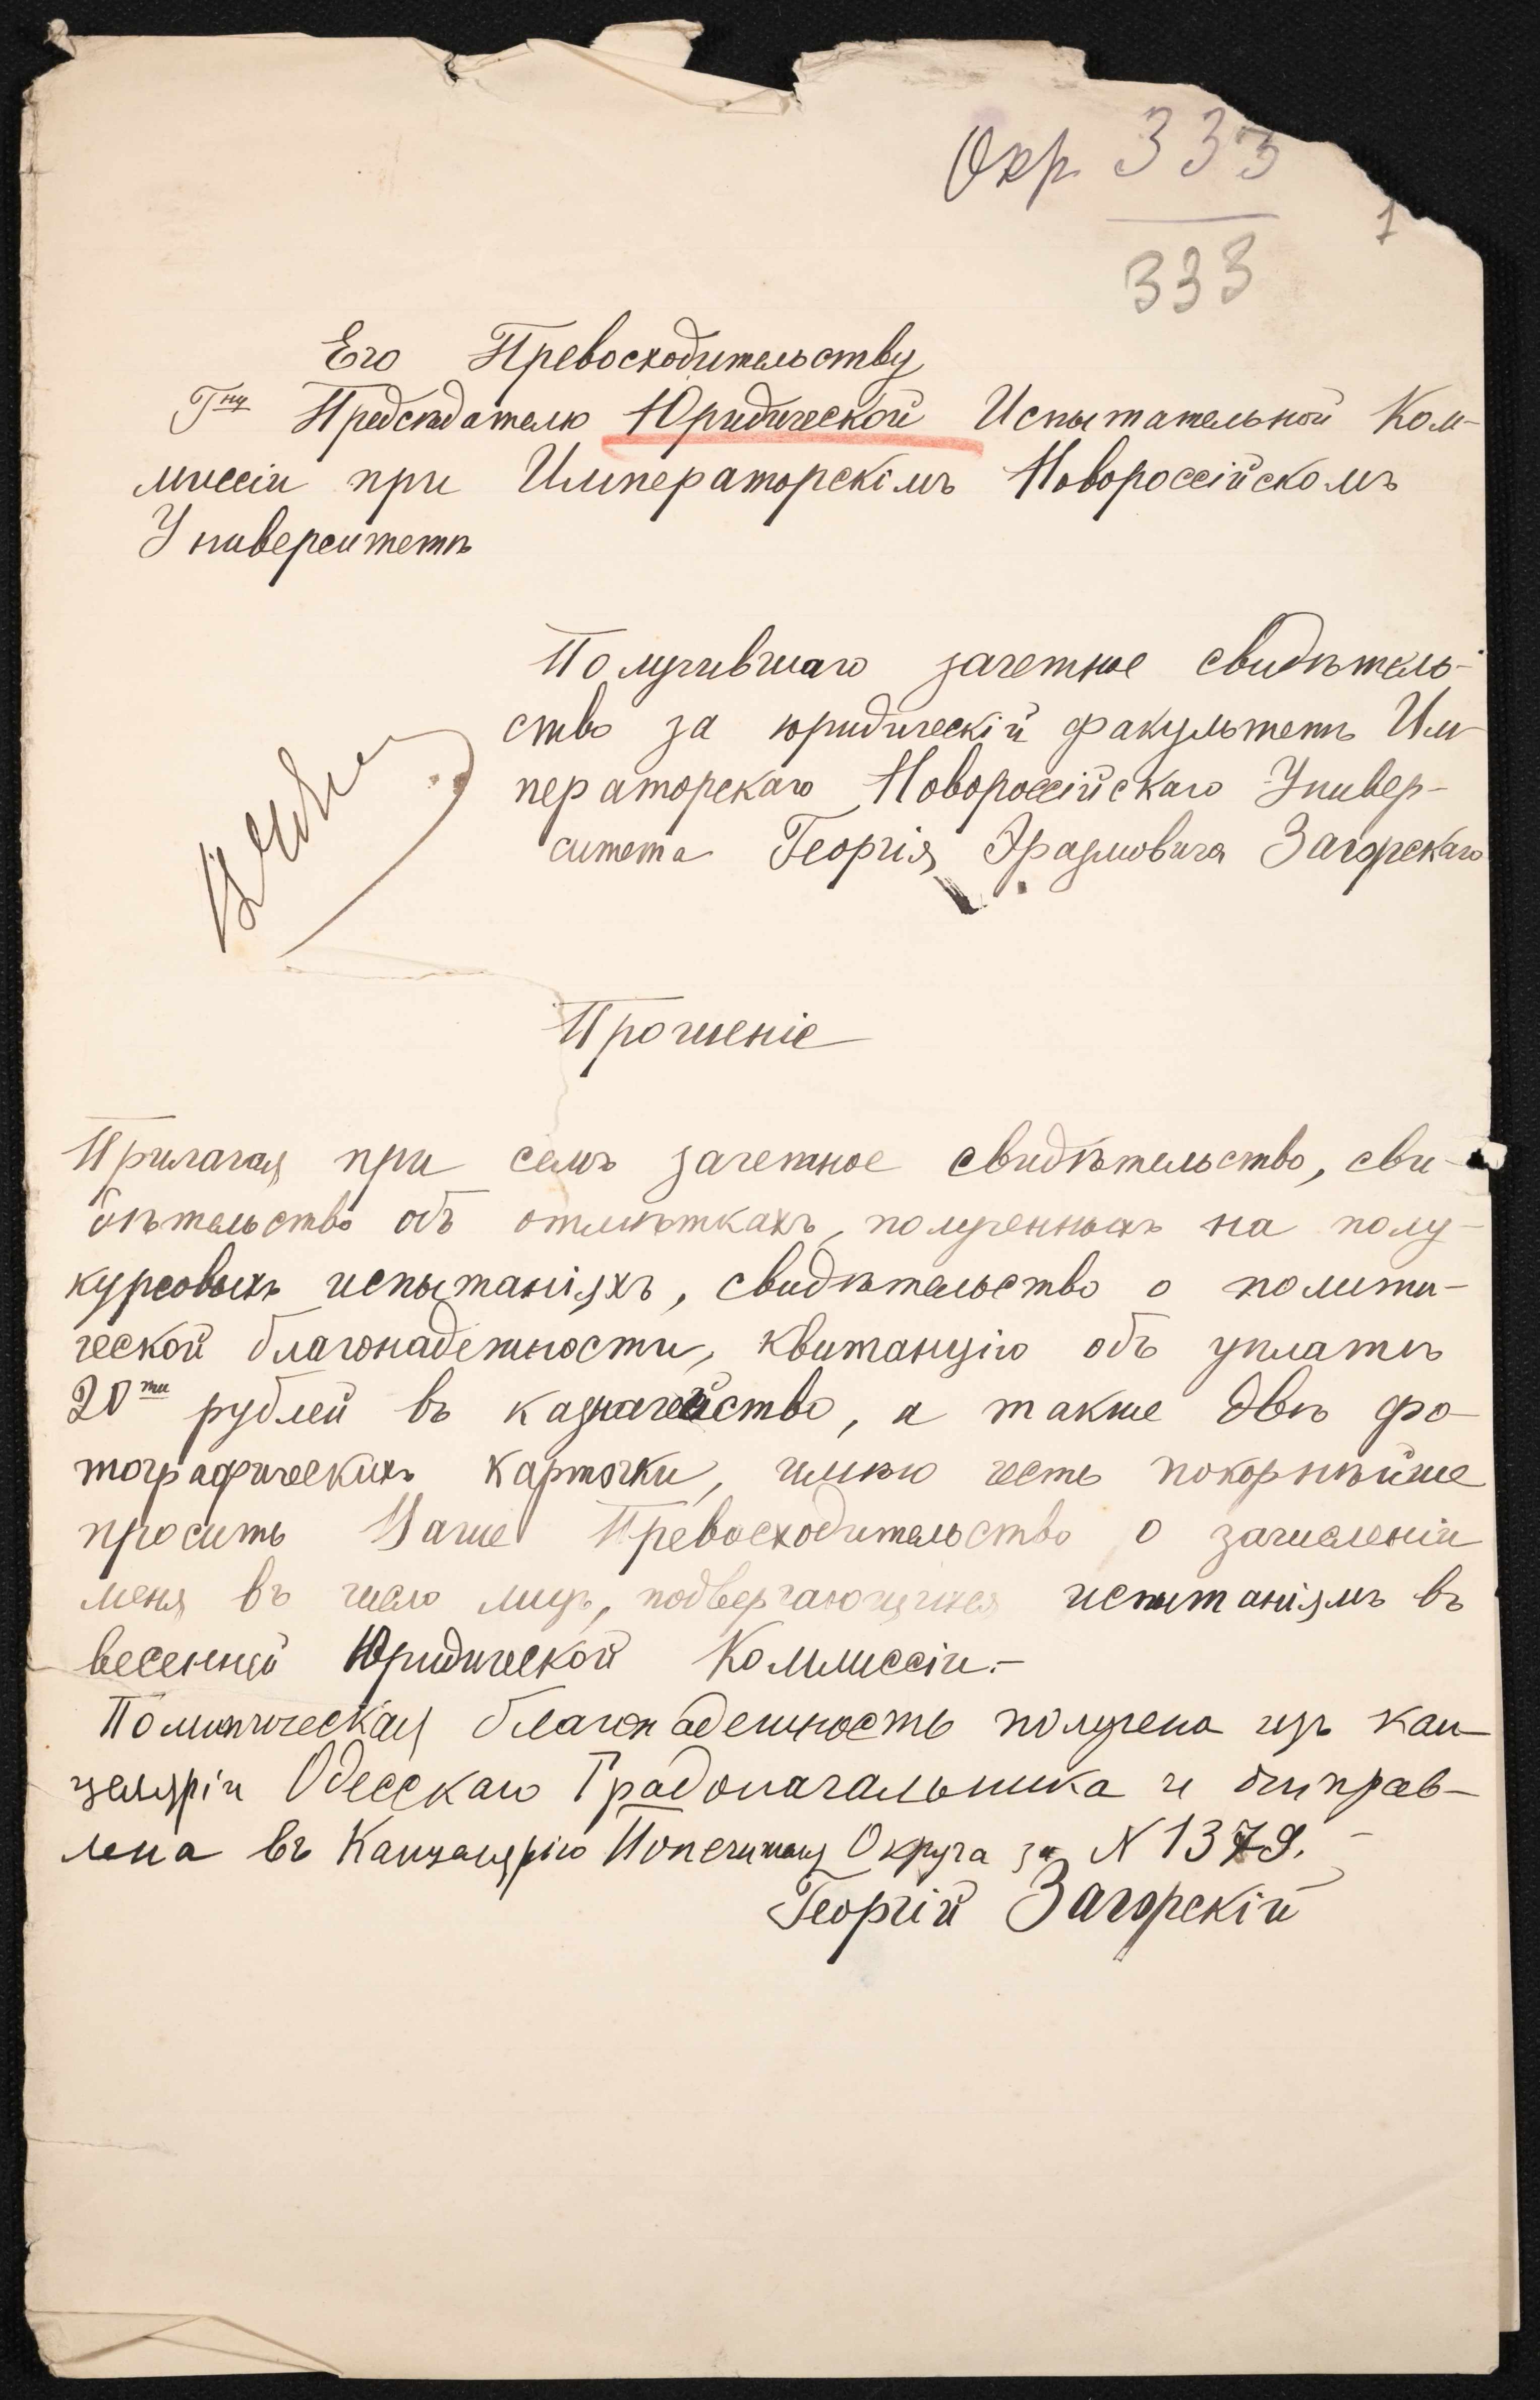 Окр. 333
1
333
Его Превосходительству
Г^ну Предсѣдателю Юридической Испытательной Ком-
миссіи при Императорскімъ Новороссійскомъ
Университетѣ
Получившаго зачетное свидѣтель-
ство за юридическій факультетъ Им-
ператорскаго Новороссійскаго Универ-
ситета Георгія Эразмовича Загорскаго
Прошеніе
Прилагая при семъ зачетное свидѣтельство, сви-
дѣтельство объ отмѣткахъ, полученныхъ на полу-
курсовыхъ испытаніяхъ, свидѣтельство о полити-
ческой благонадежности, квитанцію объ уплатѣ
20^ти рублей въ казначейство, а также двѣ фо-
тографическихъ карточки, имѣю честь покорнѣйше
просить Ваше Превосходительство о зачисленіи
меня въ число лицъ, подвергающихся испытаніямъ въ
весенней Юридической Коммиссіи.-
Политическая благонадежность получена изъ кан-
целяріи Одесскаго Градоначальника и отправ-
лена въ Канцелярію Попечителя Округа за N 1379.-
Георгій Загорскій